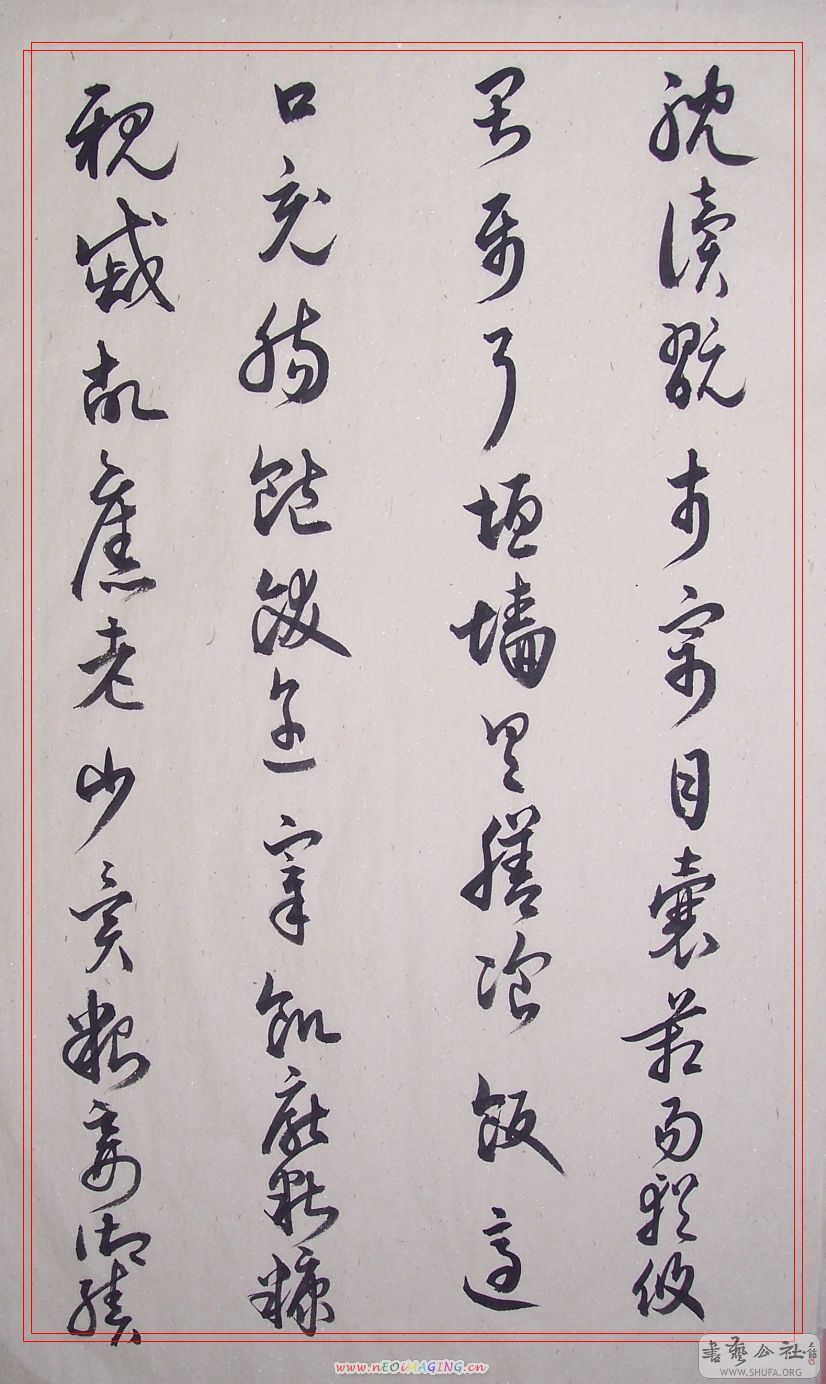 耽讀翫市寓目囊葙易輶攸
畏屬耳垣墻具膳飡飯適
口充腸飽飫烹宰飢厭糟糠
親戚故舊老少異糧妾御績
書藝公社
WWW.SHUFA.ORG
www.nEOiMAGING.cn